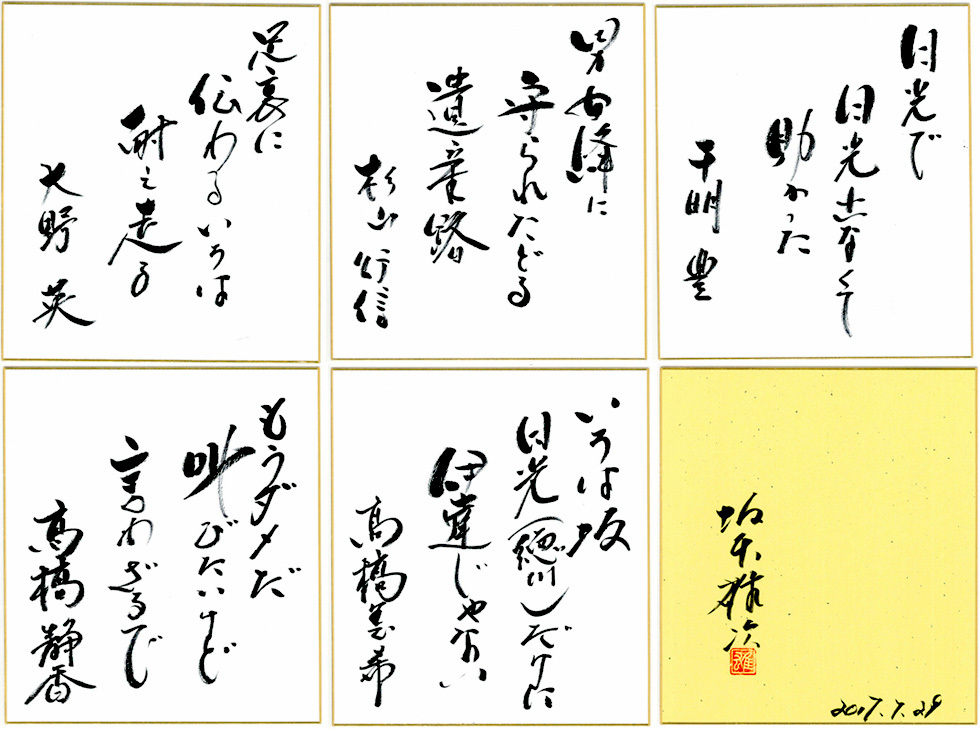 日光で
日光出なくて
助かった
千明 豊
男女峰に
守られたどる
遺産路
杉山 行信
足裏に
伝わるいろは
耐え走る
野 英
いろは坂
日光(川)だけに
伊達じゃない
高橋美希
もうダメだ
叫びたいけど
言わざるで
高橋 静香
坂本雅次
雅
2017.7.29